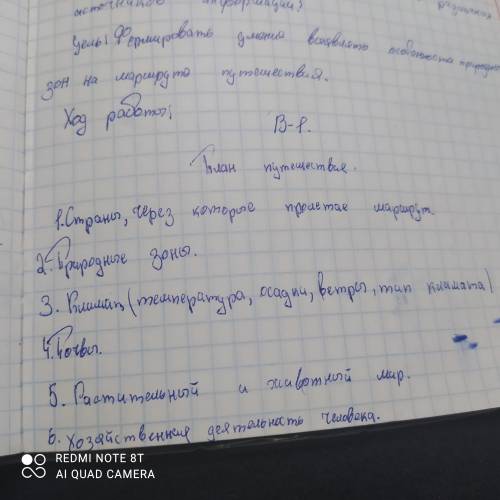 источников информации;
Цель: Формировать умения выявлять особенности природных
зон на маршруте путешествия.
Ход работы:
В-1.
План путешествия.
1. Страны, через которые пролетае маршрут.
2. Природные зоны.
3. Климат (температура, осадки, ветры, тип климата)
4. Почвы.
5. Растительный и животный мир.
6. Хозяйственная деятельность человека.
REDMI NOTE 8T
AI QUAD CAMERA